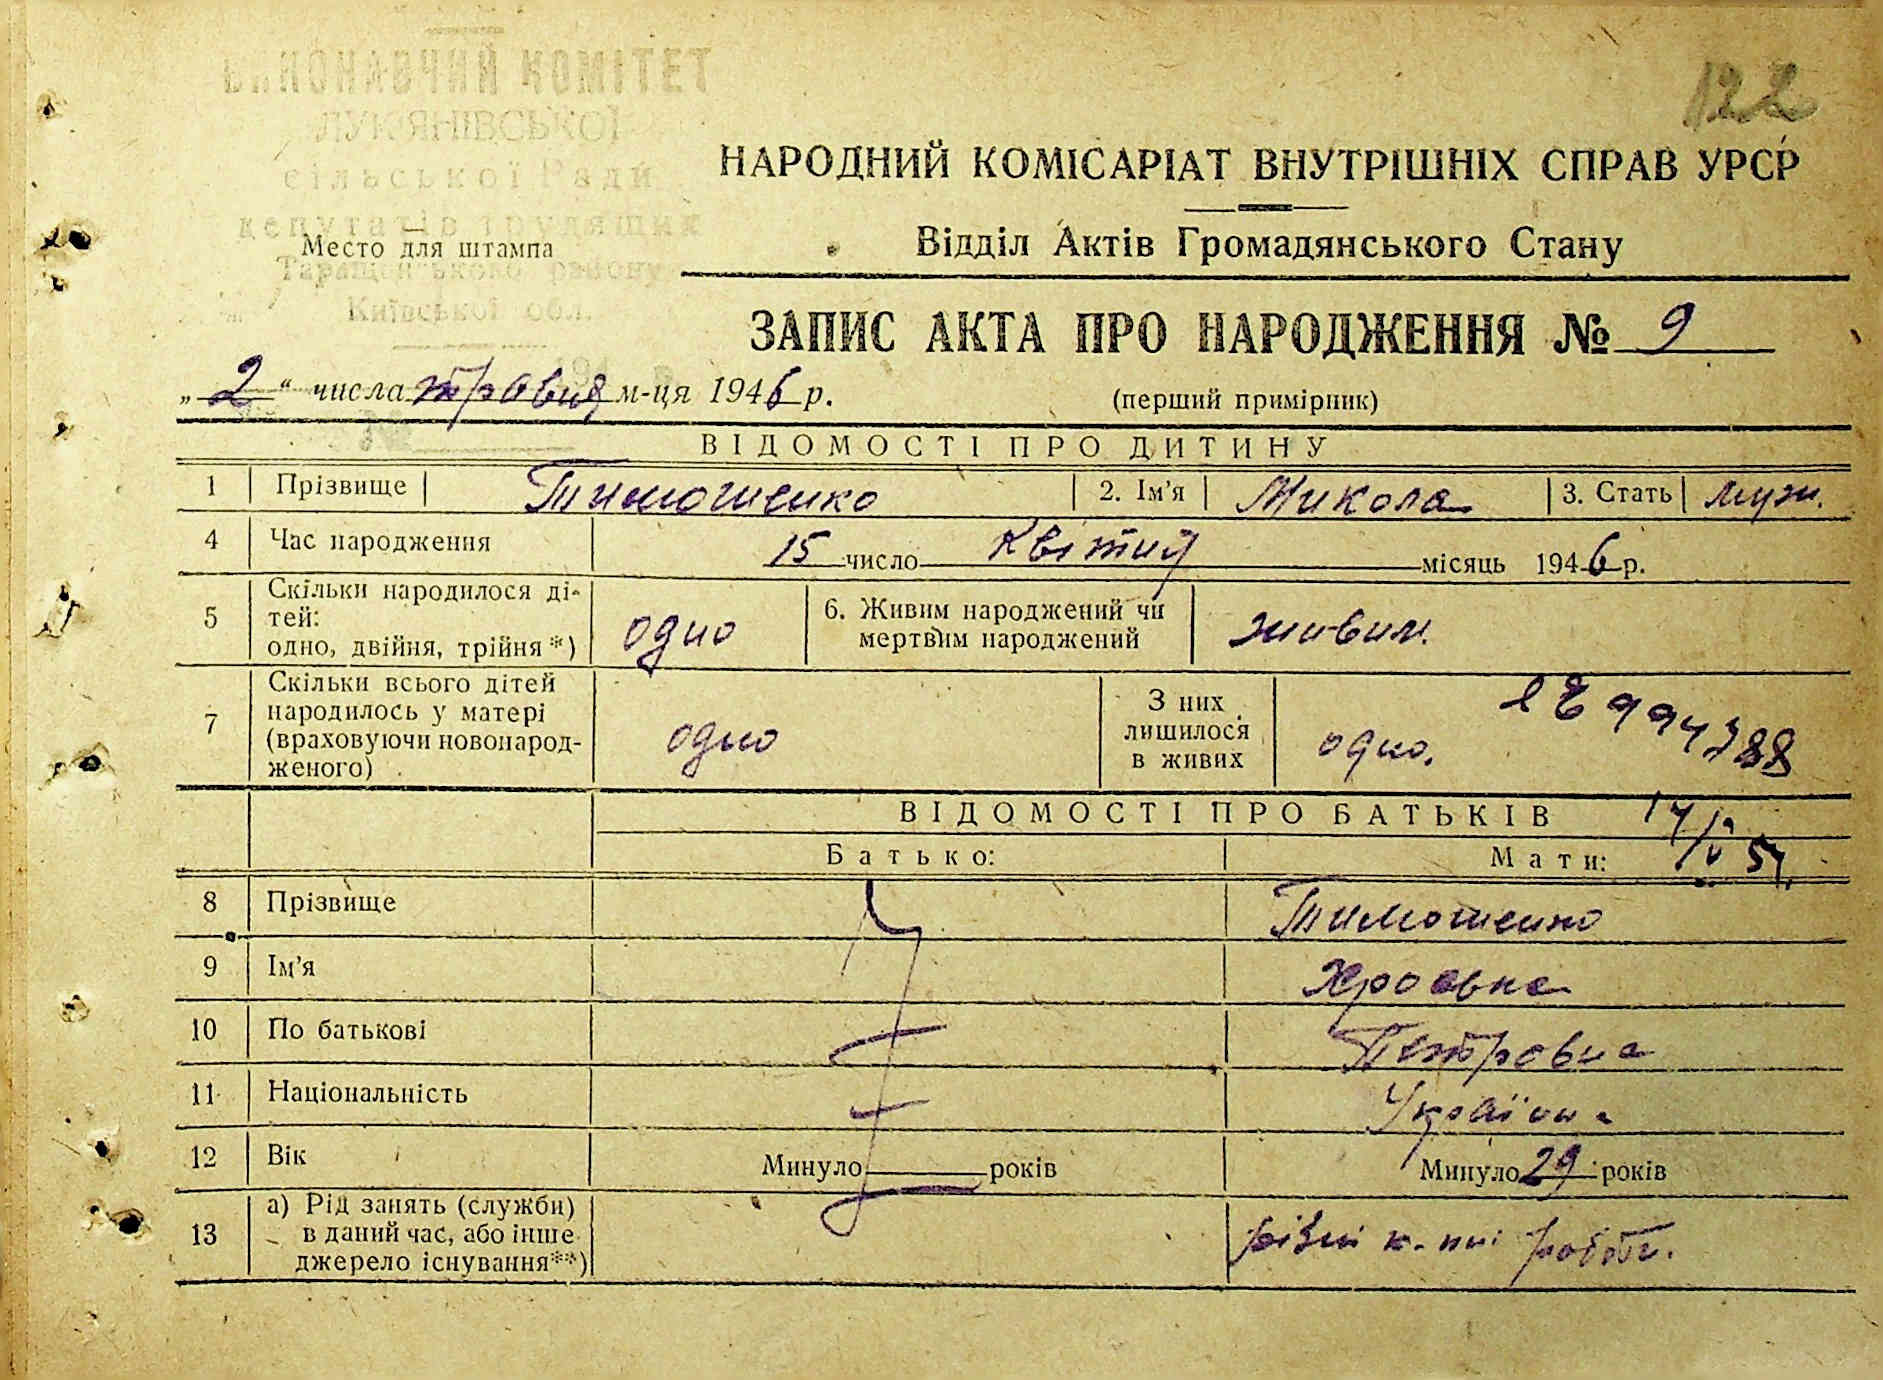 122
ВИКОНАВЧИЙ КОМІТЕТ
ЛУК'ЯНІВСЬКОЇ
сільської Ради
депутатів трудящих
Таращанського району
Київської обл.
Место для штампа
НАРОДНИЙ КОМІСАРІАТ ВНУТРІШНІХ СПРАВ УРСР
Відділ Актів Громадянського Стану
ЗАПИС АКТА ПРО НАРОДЖЕННЯ № 9
„2“ числа травня м-ця 1946 р.
(перший примірник)
№
ВІДОМОСТІ ПРО ДИТИНУ
1 Прізвище Тимошенко 2. Ім'я Микола 3. Стать муж.
4 Час народження 15 число Квітня місяць 1946 р.
5 Скільки народилося ді-
тей:
одно, двійня, трійня*) одно 6. Живим народжений чи
мертвим народжений живим.
7 Скільки всього дітей
народилось у матері
(враховуючи новонарод-
женого) одно З них
лишилося
в живих одно.
ВІДОМОСТІ ПРО БАТЬКІВ
Батько: Мати:
8 Прізвище Тимошенко
9 Ім'я
10 По батькові Петровна
11 Національність Українка
12 Вік Минуло років Минуло 29 років
13 а) Рід занять (служби)
в даний час, або інше
джерело існування**) різні робот.